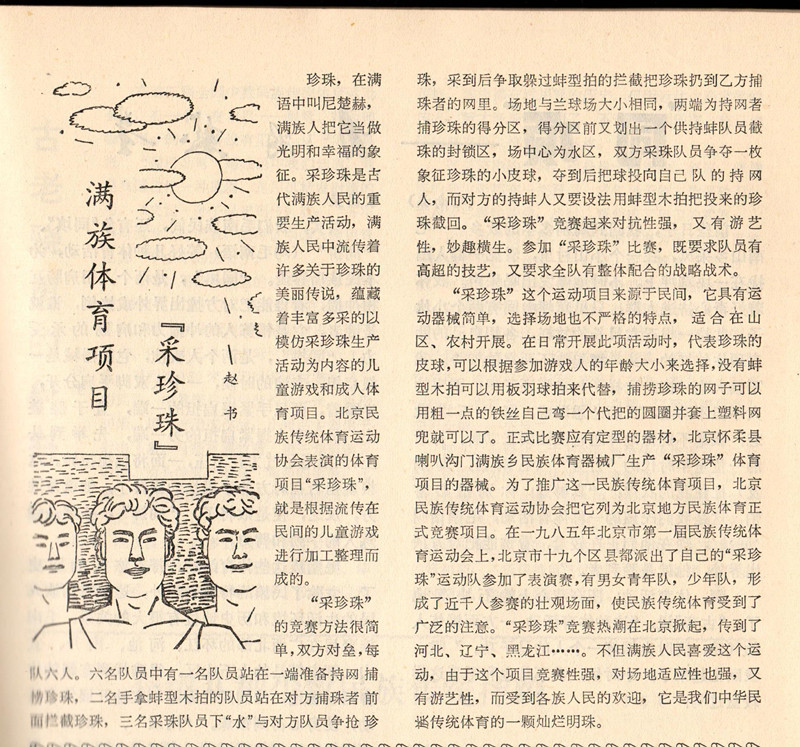 满族体育项目
『采珍珠』
赵书
珍珠，在满
语中叫尼楚赫，
满族人把它当做
光明和幸福的象
征。采珍珠是古
代满族人民的重
要生产活动，满
族人民中流传着
许多关于珍珠的
美丽传说，蕴藏
着丰富多采的以
模仿采珍珠生产
活动为内容的儿
童游戏和成人体
育项目。北京民
族传统体育运动
协会表演的体育
项目“采珍珠”，
就是根据流传在
民间的儿童游戏
进行加工整理而
成的。
“采珍珠”
的竞赛方法很简
单，双方对垒，每
队六人。六名队员中有一名队员站在一端准备持网捕
捞珍珠，二名手拿蚌型木拍的队员站在对方捕珠者前
面拦截珍珠，三名采珠队员下“水”与对方队员争抢珍
珠，采到后争取躲过蚌型拍的拦截把珍珠扔到乙方捕
珠者的网里。场地与兰球场大小相同，两端为持网者
捕珍珠的得分区，得分区前又划出一个供持蚌队员截
珠的封锁区，场中心为水区，双方采珠队员争夺一枚
象征珍珠的小皮球，夺到后把球投向自己队的持网
人，而对方的持蚌人又要设法用蚌型木拍把投来的珍
珠截回。“采珍珠”竞赛起来对抗性强，又有游艺
性，妙趣横生。参加“采珍珠”比赛，既要求队员有
高超的技艺，又要求全队有整体配合的战略战术。
“采珍珠”这个运动项目来源于民间，它具有运
动器械简单，选择场地也不严格的特点，适合在山
区、农村开展。在日常开展此项活动时，代表珍珠的
皮球，可以根据参加游戏人的年龄大小来选择，没有蚌
型木拍可以用板羽球拍来代替，捕捞珍珠的网子可以
用粗一点的铁丝自己弯一个代把的圆圈并套上塑料网
兜就可以了。正式比赛应有定型的器材，北京怀柔县
喇叭沟门满族乡民族体育器械厂生产“采珍珠”体育
项目的器械。为了推广这一民族传统体育项目，北京
民族传统体育运动协会把它列为北京地方民族体育正
式竞赛项目。在一九八五年北京市第一届民族传统体
育运动会上，北京市十九个区县都派出了自己的“采珍
珠”运动队参加了表演赛，有男女青年队，少年队，形
成了近千人参赛的壮观场面，使民族传统体育受到了
广泛的注意。“采珍珠”竞赛热潮在北京掀起，传到了
河北、辽宁、黑龙江……。不但满族人民喜爱这个运
动，由于这个项目竞赛性强，对场地适应性也强，又
有游艺性，而受到各族人民的欢迎，它是我们中华民
族传统体育的一颗灿烂明珠。